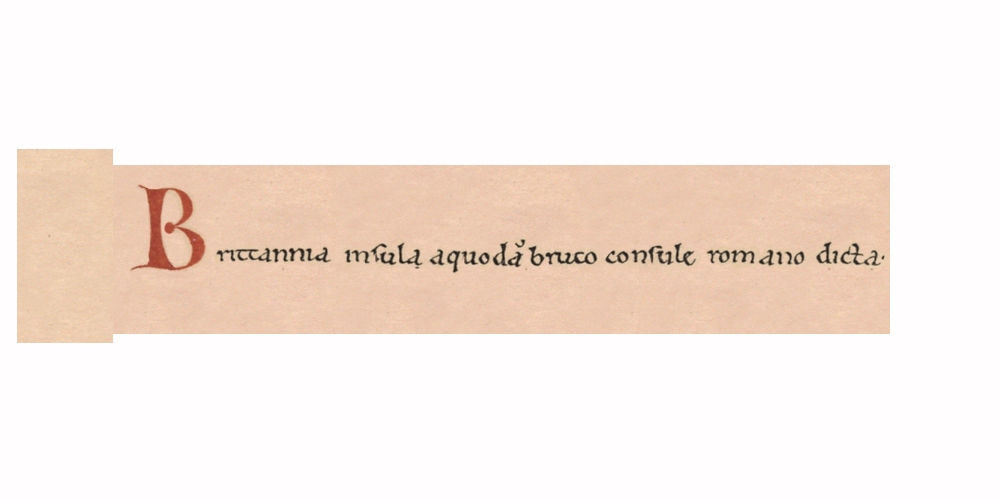 Brittannia inſula aquodã bruto conſule romano dicta·